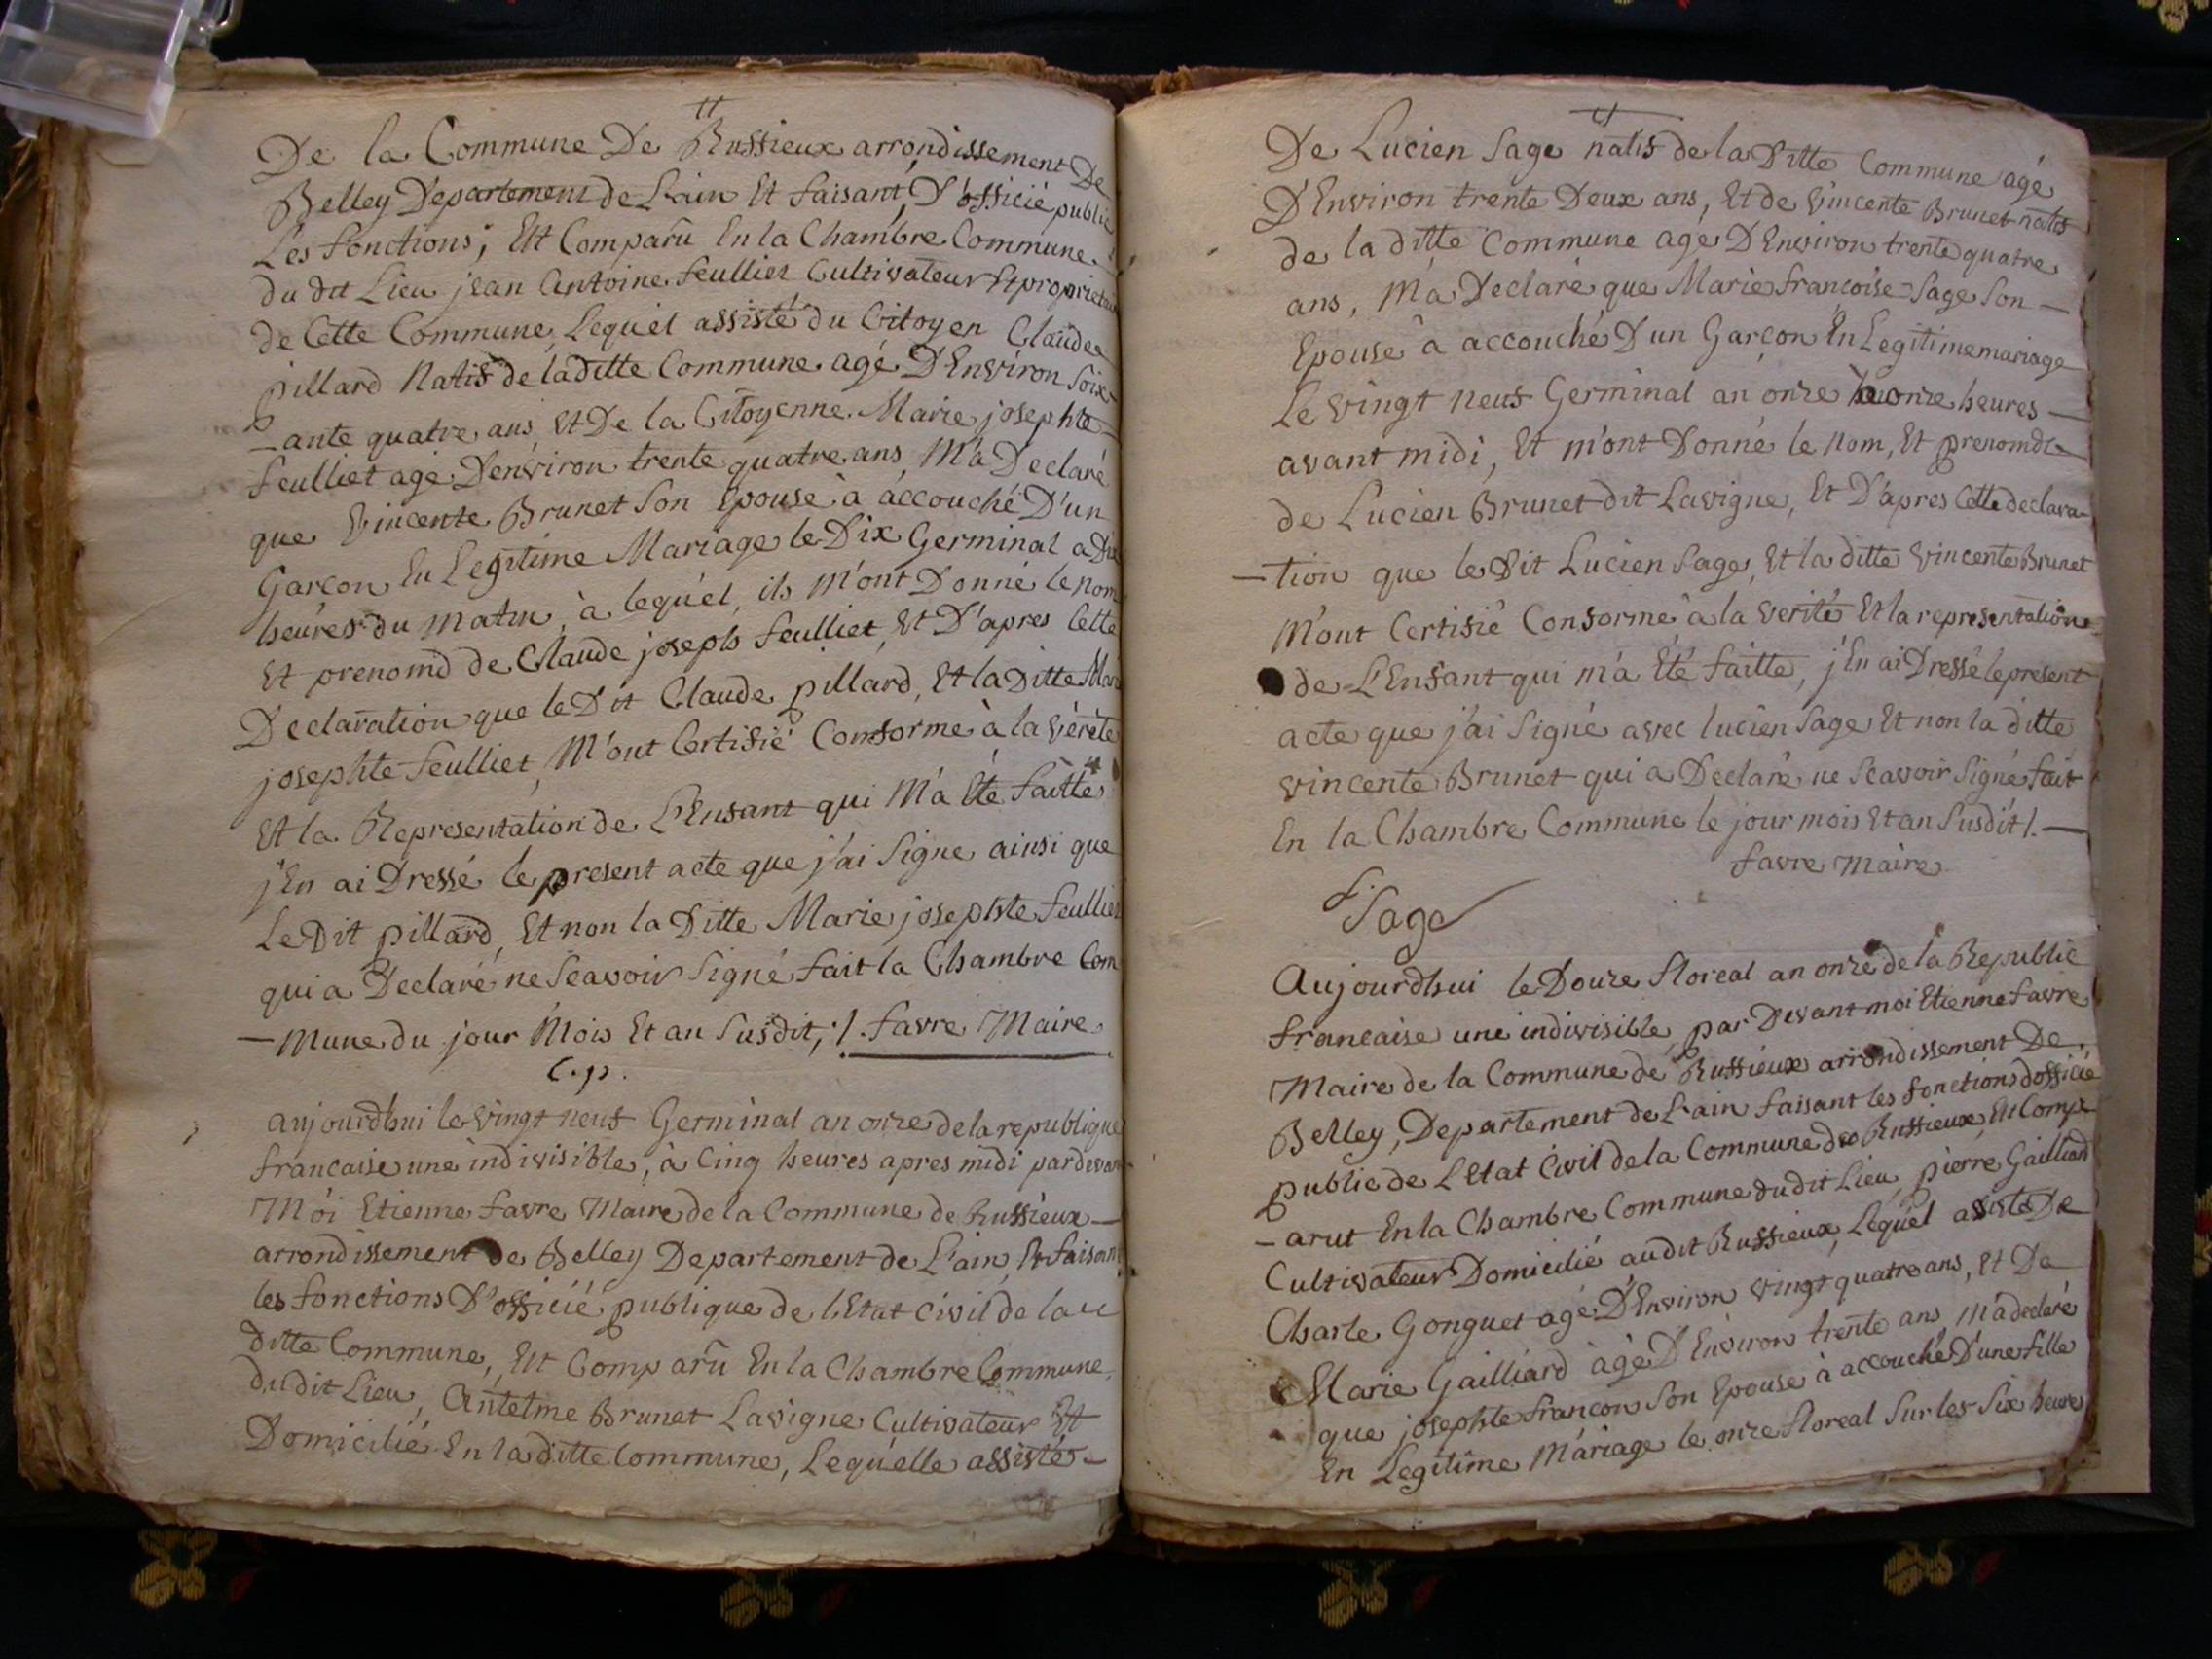 De la Commune De Russieux arrondissement De
Belley Departement de L'ain Et faisant D'officié public
Les fonctions, Est Comparû En la Chambre Commune
du dit Lieu jean Antoine feulliet Cultivateur Et proprietai
de Cette Commune, Lequel assisté du Citoyen Claude
pillard Natif de la ditte Commune agé D'Environ Soix
-ante quatre ans, Et De la Citoyenne Marie josephte
feulliet agé D'environ trente quatre ans, M'a Declaré
que Vincente Brunet Son Epouse à accouché D'un
Garcon En Legitime Mariage le Dix Germinal a Dix
heures du matin, à lequel, ils M'ont Donné le Nom
Et prenomd de Claude joseph feulliet, Et D'apres Cette
Declaration que le Dit Claude pillard, Et la Ditte Mari
josephte feulliet, M'ont Certifié Conforme à la Vérité
Et la Representation de L'Enfant qui M'a Eté faitte
j'En ai Dressé le present acte que j'ai Signe ainsi que
Le Dit pillard, Et non la Ditte Marie josephte feulliet
qui a Declaré ne Scavoir Signé fait la Chambre Com
-Mune du jour Mois Et an Susdit, /. favre Maire
C. p.
aujourdhui le Vingt neuf Germinal an onze de la republique
francaise une indivisible, à Cinq heures apres midi pardevan
Moi Etienne favre Maire de la Commune de Russieux —
arrondissement de Belley Departement de L'ain, Et faisant
les fonctions D'officié publique de l'Etat Civil de la
ditte Commune, Est Comparû En la Chambre Commune
dudit Lieu, Antelme Brunet Lavigne Cultivateur Et
Domicilié En la ditte Commune, Lequélle assisté -
De Lucien Sage natif de la Ditte Commune agé
D'Environ trente Deux ans, Et de Vincente Brunet natif
de la ditte Commune age D'Environ trente quatre
ans, M'a Declaré que Marie francoise Sage Son —
Epouse à accouché D'un Garcon En Legitime mariage
Le Vingt neuf Germinal an onze a onze heures —
avant midi, Et m'ont Donné le Nom, Et prenomd
de Lucien Brunet dit Lavigne, Et D'apres Cette declara-
-tion que le Dit Lucien Sage, Et la ditte Vincente Brunet
M'ont Certifié Conforme à la verité Et la representation
de L'Enfant qui m'a Eté faitte, j'En ai Dressé le present
acte que j'ai Signé avec lucien Sage Et non la ditte
vincente Brunet qui a Declaré ne Scavoir Signé fait
En la Chambre Commune le jour mois Et an Susdit /. —
favre Maire
Sage
Aujourdhui le Douze floreal an onze de la Republic
francaise une indivisible, par Devant moi Etienne favre
Maire de la Commune de Russieux arrondissement De
Belley, Departement de L'ain faisant les fonctions d'officié
public de L'Etat Civil de la Commune de Russieux, Est Comp
-arut En la Chambre Commune dudit Lieu, pierre Gailliard
Cultivateur Domicilié audit Russieux, Lequel assisté De
Charle Gonguet agé D'Environ vingt quatre ans, Et De
Marie Gailliard àgé D'Environ trente ans, M'a declaré
que josephte francon Son Epouse à accouché D'une fille
En Legitime Màriage le onze floreal Sur les Six heures